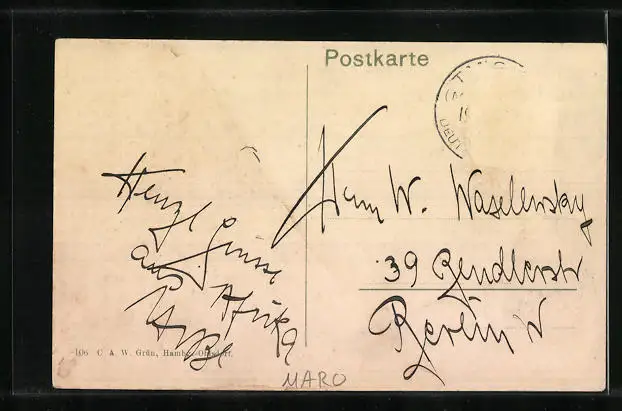 Postkarte
TANG
DEUT
Herzl. Grüsse
aus Afrika
Herrn W. Waselewsky
39 Bendlerstr
Berlin W
106 C & W. Grün, Hamburg-Ohlsdorf.
MARO